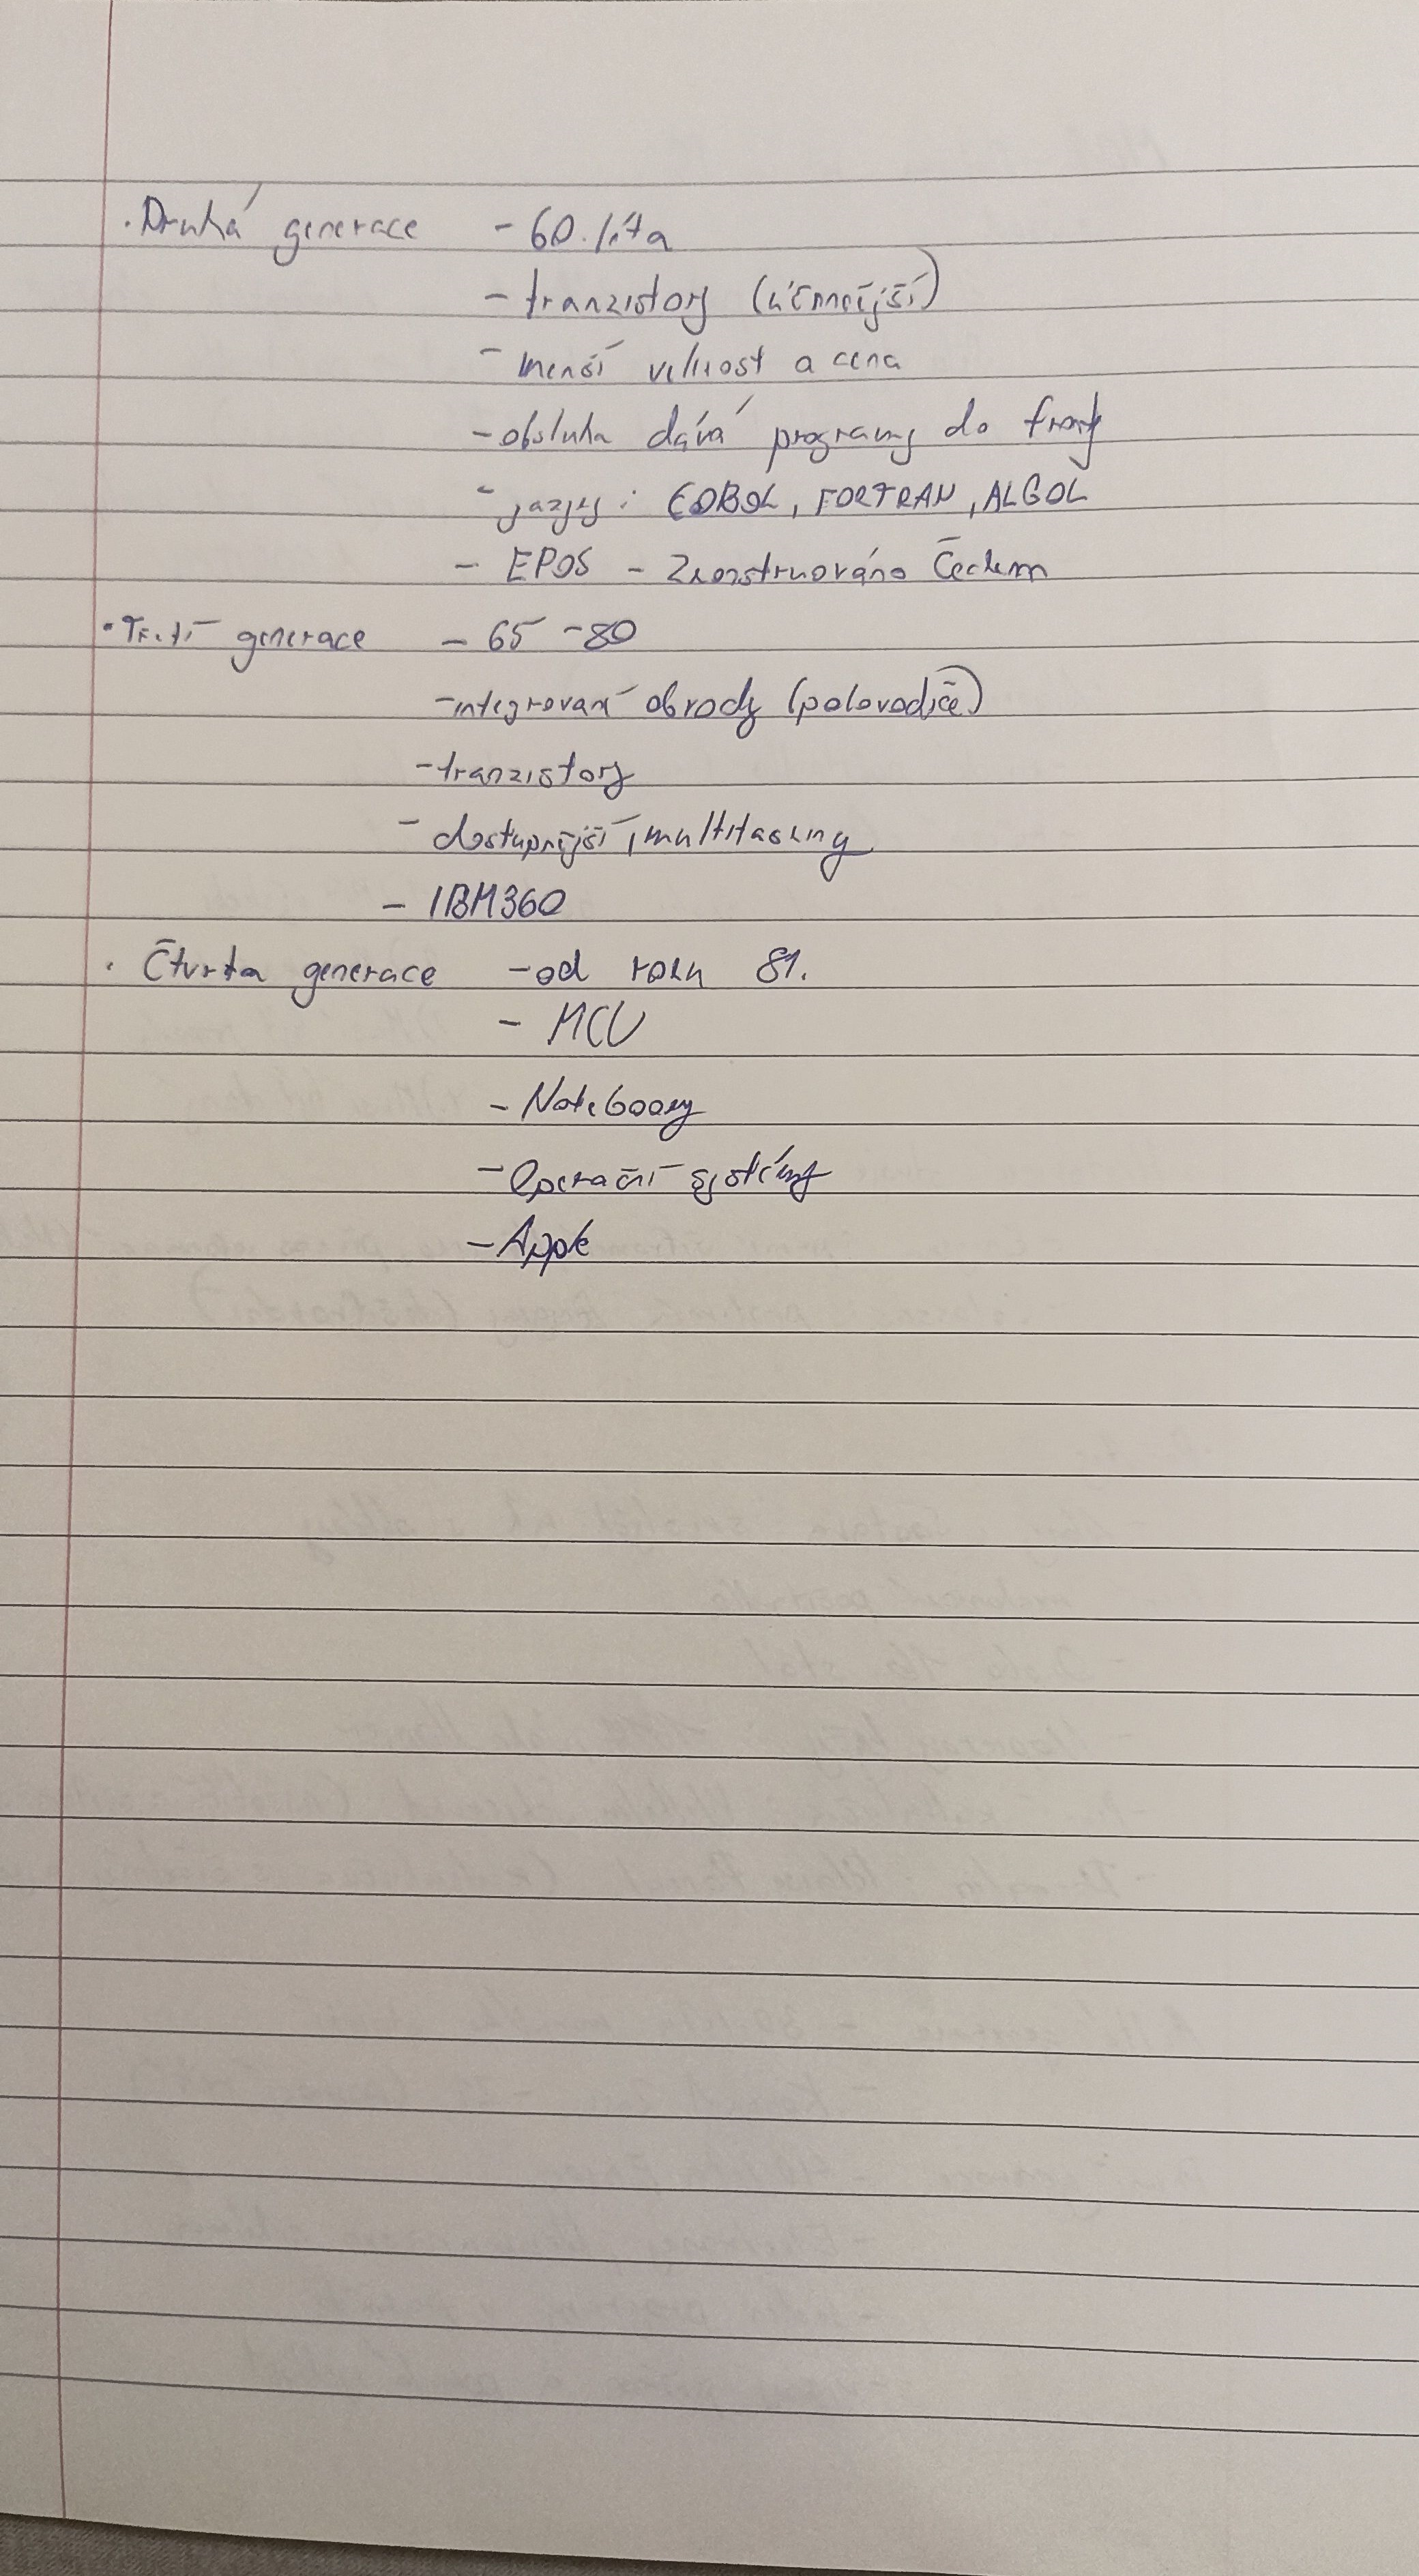 · Druhá generace - 60. léta
- tranzistory (účinnější)
- menší velikost a cena
- obsluha dává programy do fronty
- jazyky: COBOL, FORTRAN, ALGOL
- EPOS - Zkonstruováno Čechem
· Třetí generace - 65 - 80
- integrovaní obvody (polovodiče)
- tranzistory
- dostupnější, multitasking
- IBM360
· Čtvrta generace - od roku 81.
- MCU
- Notebooky
- Operační systémy
- Apple